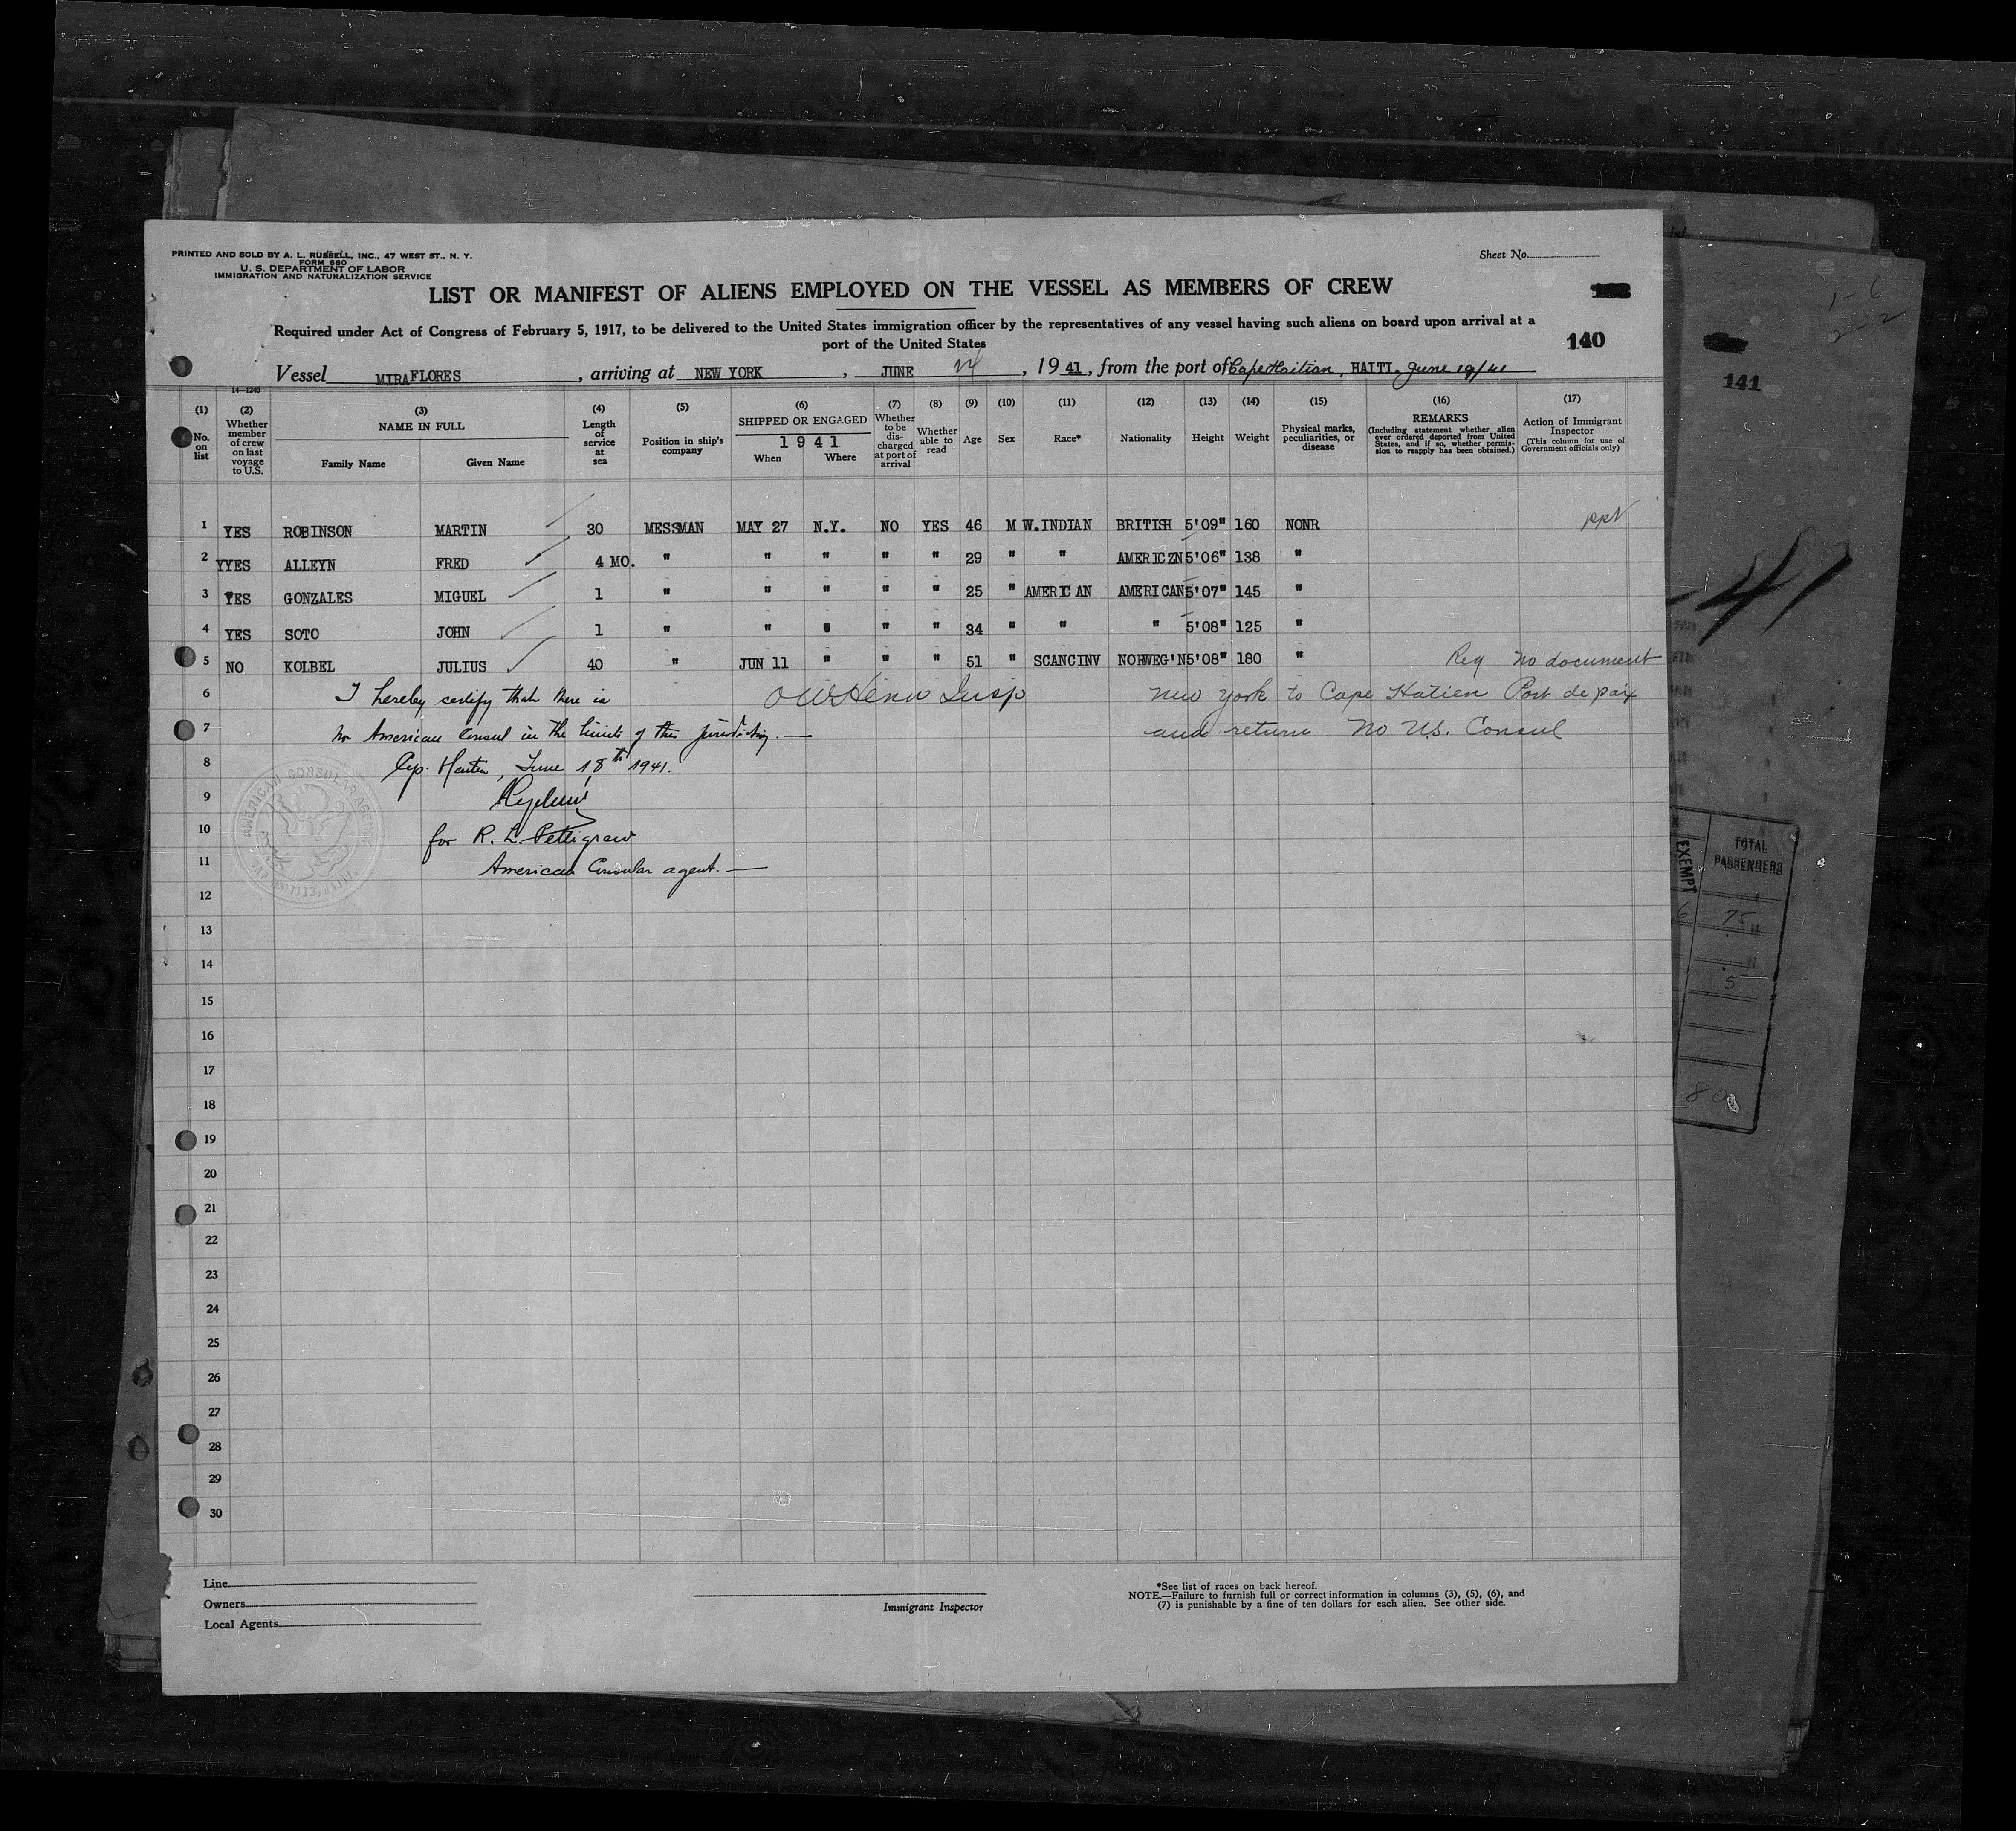 PRINTED AND SOLD BY A. L. RUSSELL, INC., 47 WEST ST., N. Y.
FORM 680
U. S. DEPARTMENT OF LABOR
IMMIGRATION AND NATURALIZATION SERVICE
Sheet No.
LIST OR MANIFEST OF ALIENS EMPLOYED ON THE VESSEL AS MEMBERS OF CREW
Required under Act of Congress of February 5, 1917, to be delivered to the United States immigration officer by the representatives of any vessel having such aliens on board upon arrival at a
port of the United States
140
Vessel MIRAFLORES, arriving at NEW YORK, JUNE 24, 1941, from the port of Cape Haitian, HAITI. June 19/41
14-1240
(1) No. on list
(2) Whether member of crew on last voyage to U.S.
(3) NAME IN FULL Family Name Given Name
(4) Length of service at sea
(5) Position in ship's company
(6) SHIPPED OR ENGAGED 1941 When Where
(7) Whether to be discharged at port of arrival
(8) Whether able to read
(9) Age
(10) Sex
(11) Race*
(12) Nationality
(13) Height
(14) Weight
(15) Physical marks, peculiarities, or disease
(16) REMARKS (Including statement whether alien ever ordered deported from United States, and if so, whether permission to reapply has been obtained.)
(17) Action of Immigrant Inspector (This column for use of Government officials only)
1 YES ROBINSON MARTIN 30 MESSMAN MAY 27 N.Y. NO YES 46 M W.INDIAN BRITISH 5'09" 160 NONR ppt
2 YYES ALLEYN FRED 4 MO. " " " " " 29 " " AMERICZN 5'06" 138 "
3 YES GONZALES MIGUEL 1 " " " " " 25 " AMERICAN AMERICAN 5'07" 145 "
4 YES SOTO JOHN 1 " " " " " 34 " " " 5'08" 125 "
5 NO KOLBEL JULIUS 40 " JUN 11 " " " 51 " SCANCINV NORWEG'N 5'08" 180 " Reg no document
6 I hereby certify that there is Insp New York to Cape Hatien Port de paix
7 no American Consul in the limits of this jurisdiction. — and return No U.S. Consul
8 Cap. Haitien, June 18th 1941.
9
10 for R. L. Pettigrew
11 American Consular agent. —
AMERICAN CONSULAR AGENCY
12
13
14
15
16
17
18
19
20
21
22
23
24
25
26
27
28
29
30
Line
Owners
Local Agents
Immigrant Inspector
*See list of races on back hereof.
NOTE.—Failure to furnish full or correct information in columns (3), (5), (6), and
(7) is punishable by a fine of ten dollars for each alien. See other side.
1-6
2-2
141
41
EXEMPT
TOTAL PASSENGERS
6
75
5
80